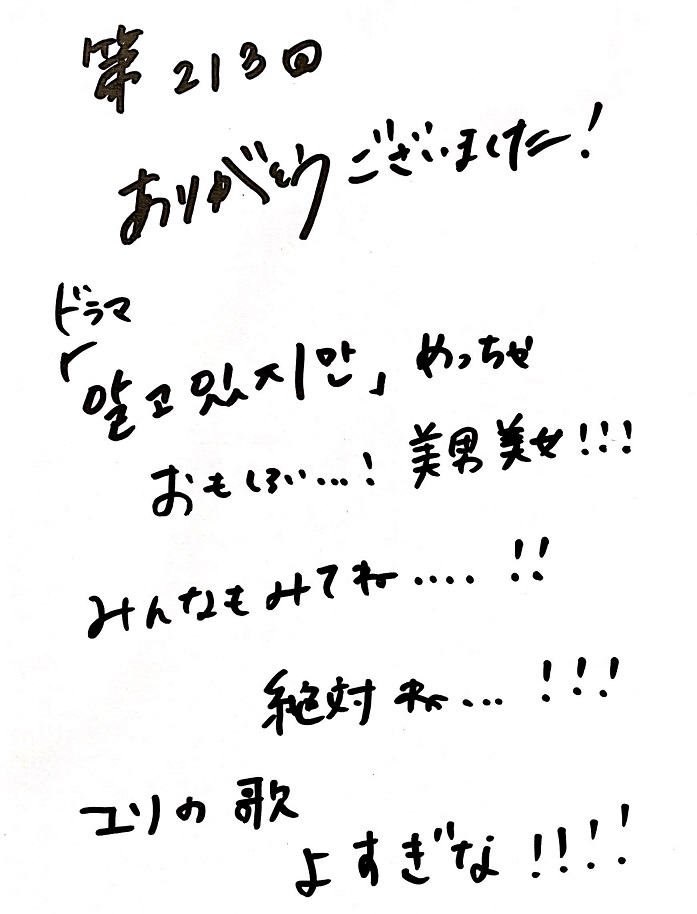 第213回
ありがとうございました!
ドラマ
「알고있지만」めっちゃ
おもしろい…! 美男美女!!!
みんなもみてね….!!
絶対ね…!!!
ユリの歌
よすぎな!!!!